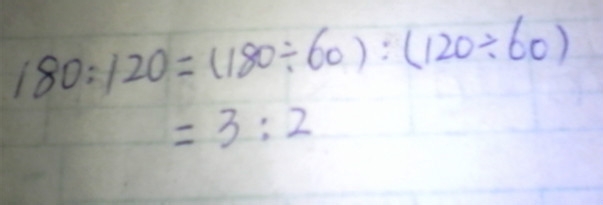 180:120=(180÷60):(120÷60)
=3:2